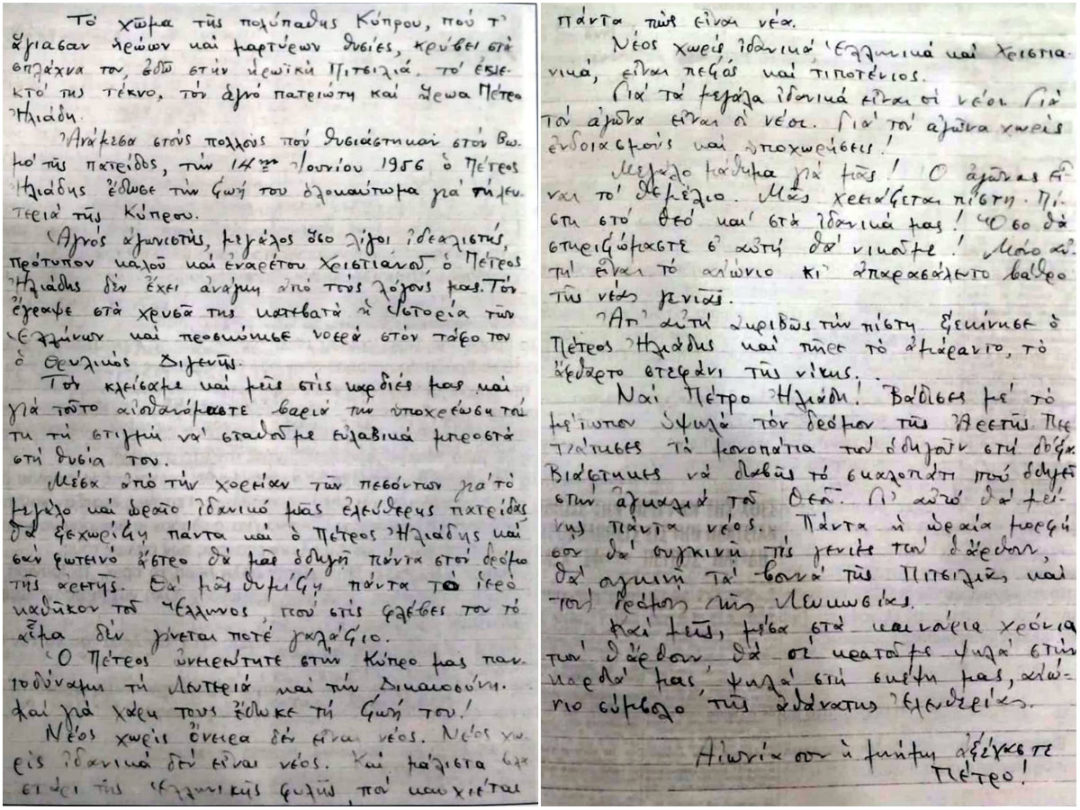 Τό χῶμα τῆς πολύπαθης Κύπρου, πού τ'
ἅγιασαν ἡρώων καί μαρτύρων θυσίες, κρύβει στά
σπλάχνα του, ἐδῶ στήν ἡρωϊκή Πιτσιλιά, τό ἐκλε-
κτό της τέκνο, τόν ἁγνό πατριώτη καί ἥρωα Πέτρο
Ἠλιάδη.
Ἀνάμεσα στούς πολλούς πού θυσιάστηκαν στόν βω-
μό τῆς πατρίδος, τήν 14ην Ἰουνίου 1956 ὁ Πέτρος
Ἠλιάδης ἔδωσε τήν ζωή του ὁλοκαύτωμα γιά τή λευ-
τεριά τῆς Κύπρου.
Ἁγνός ἀγωνιστής, μεγάλος ὅσο λίγοι ἰδεαλιστής,
πρότυπον καλοῦ καί ἐναρέτου Χριστιανοῦ, ὁ Πέτρος
Ἠλιάδης δέν ἔχει ἀνάγκη ἀπό τούς λόγους μας. Τόν
ἔγραψε στά χρυσᾶ της κατεβατά ἡ Ἱστορία τῶν
Ἑλλήνων καί προσκύνησε νοερά στόν τάφο του
ὁ θρυλικός Διγενής.
Τόν κλείσαμε καί μεῖς στίς καρδιές μας καί
γιά τοῦτο αἰσθανόμαστε βαριά την ὑποχρέωση τού
τη τή στιγμή νά σταθοῦμε εὐλαβικά μπροστά
στή θυσία του.
Μέσα ἀπό τήν χορείαν τῶν πεσόντων γιά τό
μεγάλο καί ὡραῖο ἰδανικό μιᾶς ἐλεύθερης πατρίδας
θά ξεχωρίζη πάντα καί ὁ Πέτρος Ἠλιάδης καί
σάν φωτεινό ἄστρο θά μᾶς ὁδηγῆ πάντα στόν δρόμο
τῆς ἀρετῆς. Θά μᾶς θυμίζη πάντα τό ἱερό
καθῆκον τοῦ Ἕλληνος, πού στίς φλέβες του τό
αἷμα δέν γίνεται ποτέ γαλάζιο.
Ὁ Πέτρος ὀνειρεύτητε στήν Κύπρο μας παν-
τοδύναμη τή Λευτεριά καί τήν Δικαιοσύνη.
Καί γιά χάρη τους ἔδωκε τή ζωή του!
Νέος χωρίς ὄνειρα δέν εἶναι νέος. Νέος χω-
ρίς ἰδανικά δέν εἶναι νέος. Καί μάλιστα βλα
στάρι τῆς Ἑλληνικῆς φυλῆς, πού καυχιέται
πάντα πώς εἶναι νέα.
Νέος χωρίς ἰδανικά, Ἑλληνικά καί Χριστια-
νικά, εἶναι πεζός καί τιποτένιος.
Γιά τά μεγάλα ἰδανικά εἶναι οἱ νέοι. Γιά
τόν ἀγῶνα εἶναι οἱ νέοι. Γιά τόν ἀγῶνα χωρίς
ἐνδοιασμούς καί ὑποχωρήσεις!
Μεγάλο μάθημα γιά μᾶς! Ὁ ἀγῶνας εἶ-
ναι τό θεμέλιο. Μᾶς χρειάζεται πίστη. Πί-
στη στό Θεό καί στά ἰδανικά μας! Ὅσο θά
στηριζώμαστε σ' αὐτή θά νικοῦμε! Μόνο αὐ-
τή εἶναι τό αἰώνιο κι' ἀπαρασάλευτο βάθρο
τῆς νέας γενιᾶς.
Ἀπ' αὐτή ἀκριβῶς τήν πίστη ξεκίνησε ὁ
Πέτρος Ἠλιάδης καί πῆρε τό ἀμάραντο, τό
ἄφθαρτο στεφάνι τῆς νίκης.
Ναί Πέτρο Ἠλιάδη! Βάδισες μέ τό
μέτωπον ὑψηλά τόν δρόμον τῆς Ἀρετῆς. Περ
πάτησες τά μονοπάτια πού ὁδηγοῦν στή δόξα.
Βιάστηκες νά διαβῆς τό σκαλοπάτι πού ὁδηγεῖ
στήν ἀγκαλιά τοῦ Θεοῦ. Γι' αὐτό θά μεί-
νης πάντα νέος. Πάντα ἡ ὡραία μορφή
σου θά συγκινῆ τίς γενιές πού θἄρθουν,
θά συγκινῆ τά βουνά τῆς Πιτσιλιᾶς καί
τούς δρόμους τῆς Λευκωσίας.
Καί μεῖς, μέσα στά καινούρια χρόνια
πού θἄρθουν, θά σέ κρατοῦμε ψηλά στήν
καρδιά μας, ψηλά στή σκέψη μας, αἰώ-
νιο σύμβολο τῆς ἀθάνατης Ἐλευθερίας.
Αἰωνία σου ἡ μνήμη ἀξέχαστε
Πέτρο!